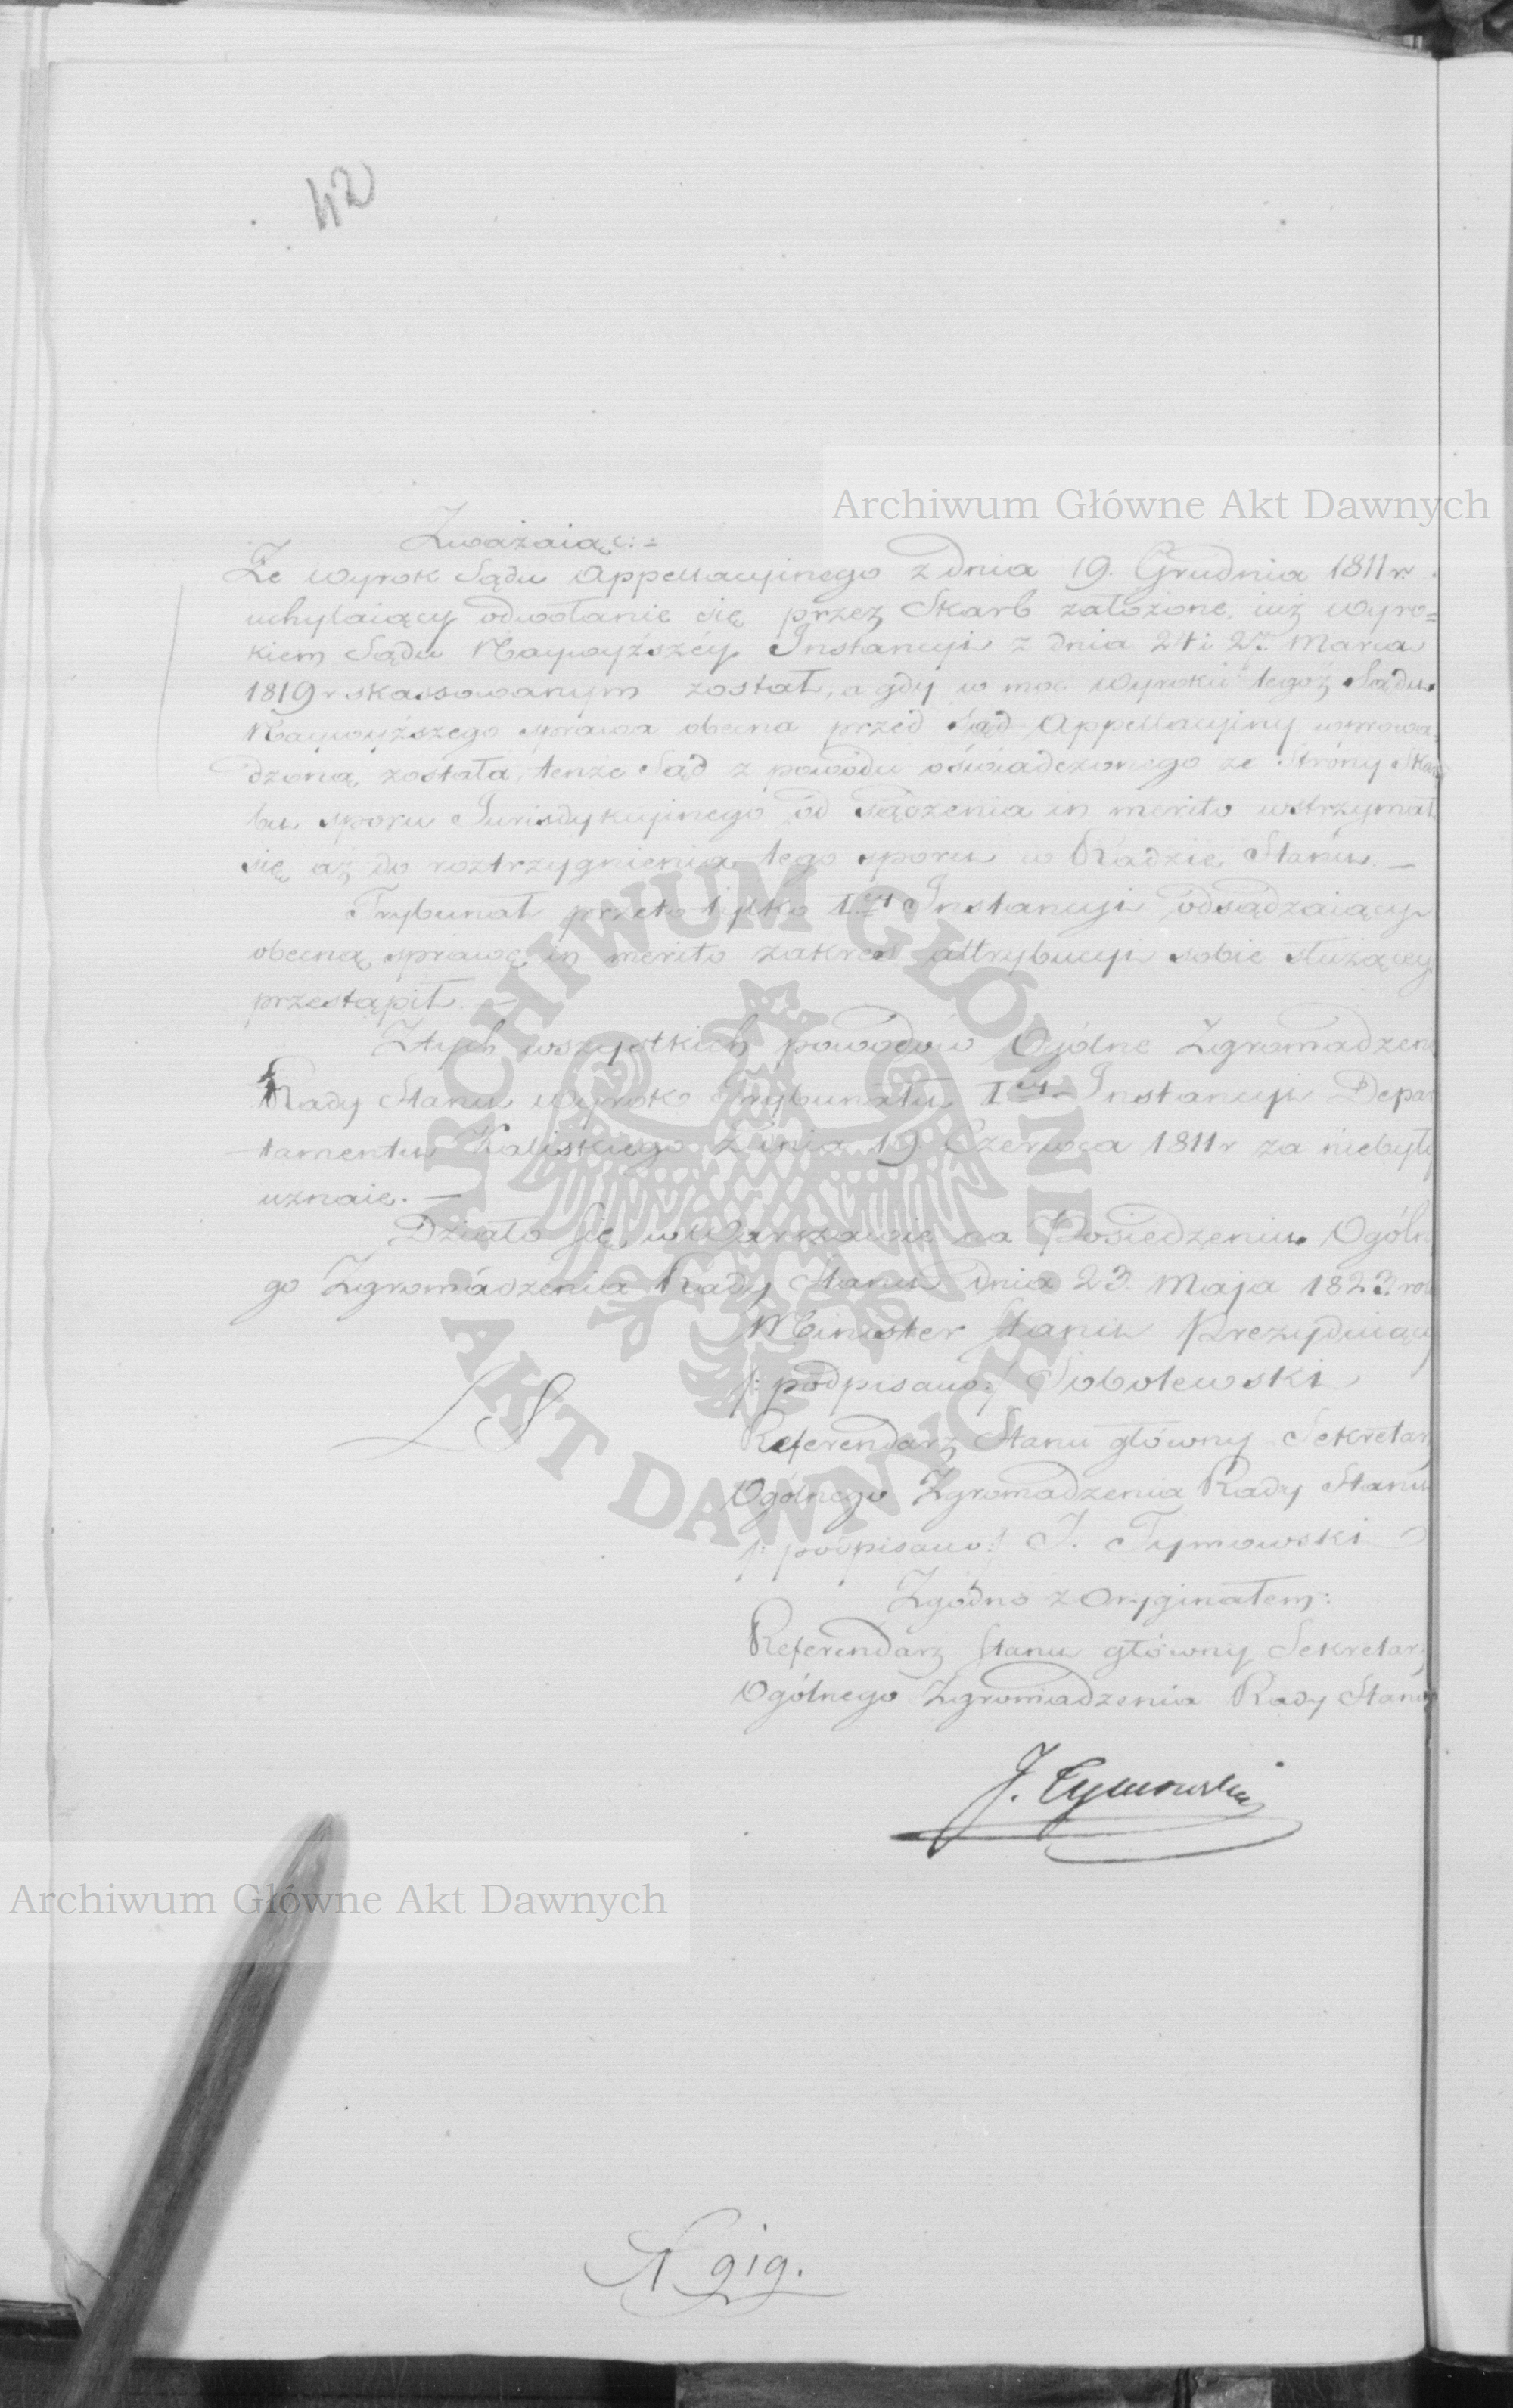 42
Archiwum Główne Akt Dawnych
Zważaiąc:=
Że wyrok Sądu Appellacyinego z dnia 19. Grudnia 1811 r.
uchylaiący odwołanie się przez Skarb założone, iuż wyro=
kiem Sądu Naywyższéy Instancyi z dnia 24 i 27. Marca
1819 r skassowanym został, a gdy w moc wyroku tegoż Sądu
Naywyższego sprawa obecna przed Sąd Appellacyiny wprowa=
dzoną została, tenże Sąd z powodu oświadczonego ze Strony Skar
bu sporu Jurisdykcyinego od sądzenia in merito wstrzymał
się aż do roztrzygnienia tego sporu w Radzie Stanu. —
Trybunał przeto tylko Iéy Instancyi odsądzaiący
obecną sprawę in merito zakres attrybucyi sobie służącey
przestąpił. —
Z tych wszystkich powodów Ogólne Zgromadzen
Rady Stanu wyrok Trybunału Iéy Instancyi Depar
tamentu Kaliskiego z dnia 19. Czerwca 1811 r za niebyły
uznaie. —
Działo się w Warszawie na Posiedzeniu Ogóln
go Zgromadzenia Rady Stanu dnia 23. Maja 1823. ro
Minister Stanu Prezyduiący
/: podpisano :/ Sobolewski
L S
Referendarz Stanu główny Sekretarz
Ogólnego Zgromadzenia Rady Stanu
/: podpisano :/ J. Tymowski
Zgodno z Oryginałem:
Referendarz Stanu główny Sekretarz
Ogólnego Zgromadzenia Rady Stanu
J. Tymowski
Archiwum Główne Akt Dawnych
N 919.
ARCHIWUM GŁÓWNE AKT DAWNYCH